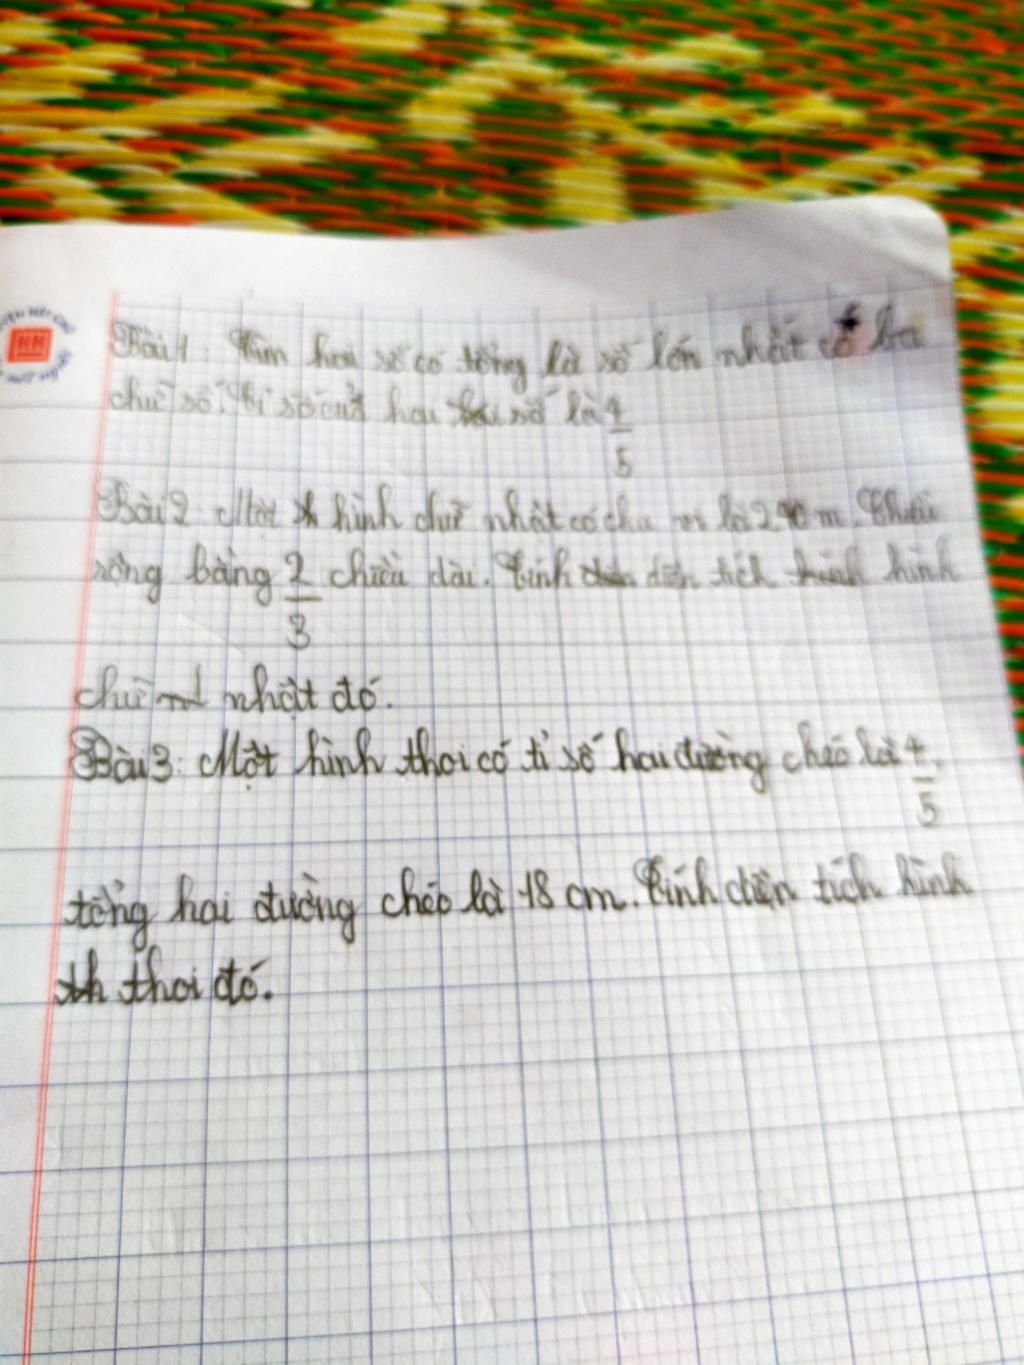 Bài 1: Tìm hai số có tổng là số lớn nhất có ba
chữ số. Tỉ số của hai số là 4/5
Bài 2: Một hình chữ nhật có chu vi là m. Chiều
rộng bằng 2/3 chiều dài. Tính diện tích hình
chữ nhật đó.
Bài 3: Một hình thoi có tỉ số hai đường chéo là 4/5,
tổng hai đường chéo là 18 cm. Tính diện tích hình
thoi đó.